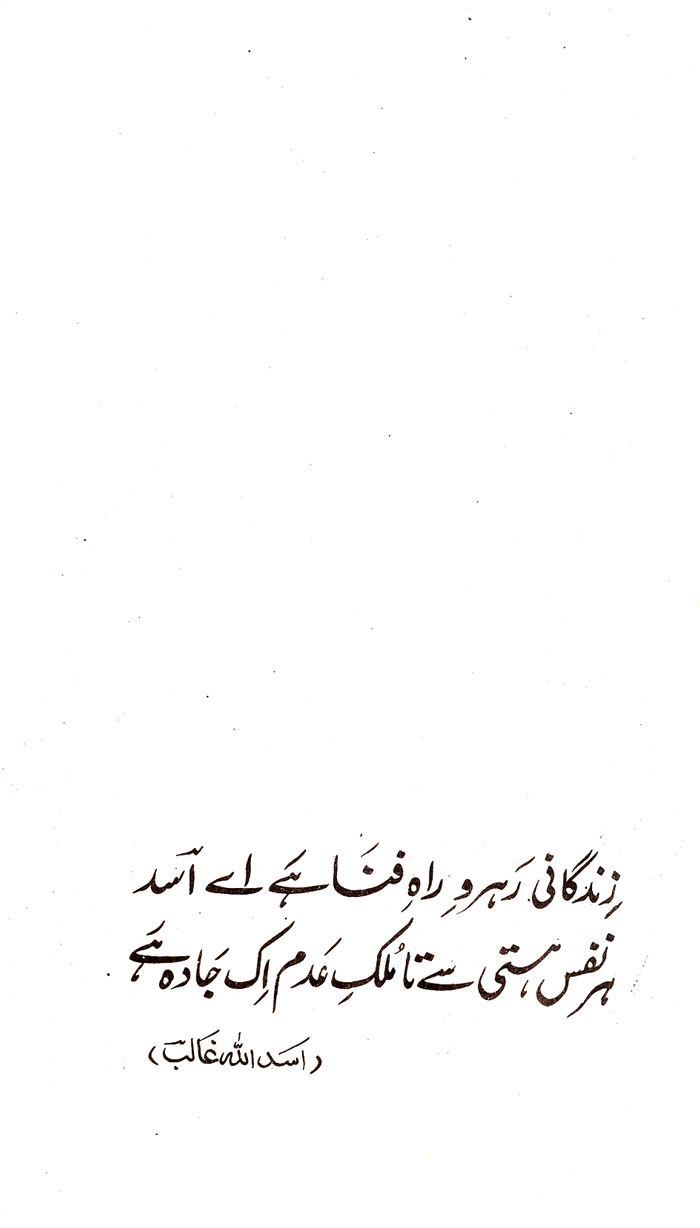 زِندگانی رَہروِ راہِ فنَا ہَے اے اسَد
ہر نفَس ہستی سے تا مُلکِ عَدم اِک جَادہ ہَے
(اسَد اللہ غَالب)